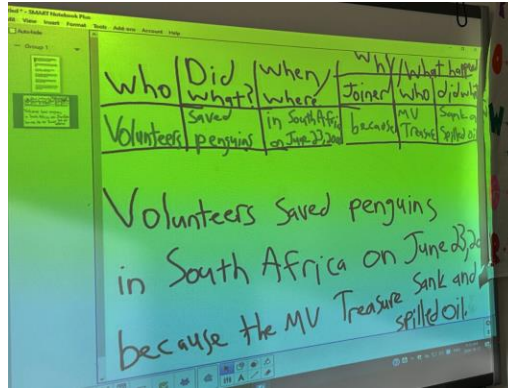 SMART Notebook
Edit View Insert Format Tools Add-ons Account Help
Auto-hide
Group 1
Who Did what? When/where Why/What happ
Joiner who did wh
Volunteers saved penguins in South Afri on June 23, because MV Treasure Sank spilled oil
Volunteers saved penguins
in South Africa on June 23,
because the MV Treasure Sank and
spilled oil.